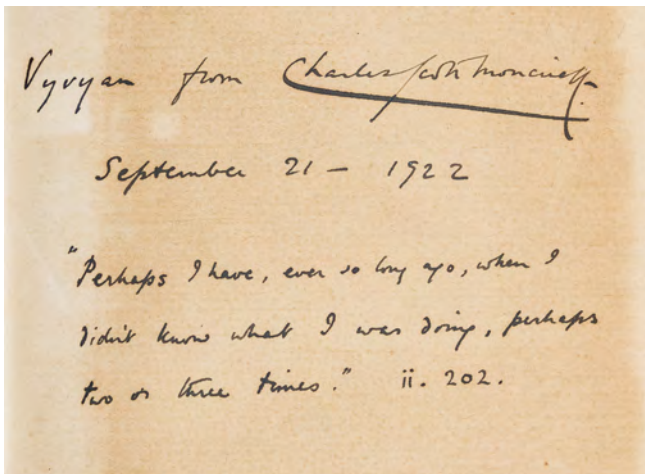 Vyvyan from Charles Scott Moncrieff.
September 21 — 1922
"Perhaps I have, ever so long ago, when I
didn't know what I was doing, perhaps
two or three times." ii. 202.